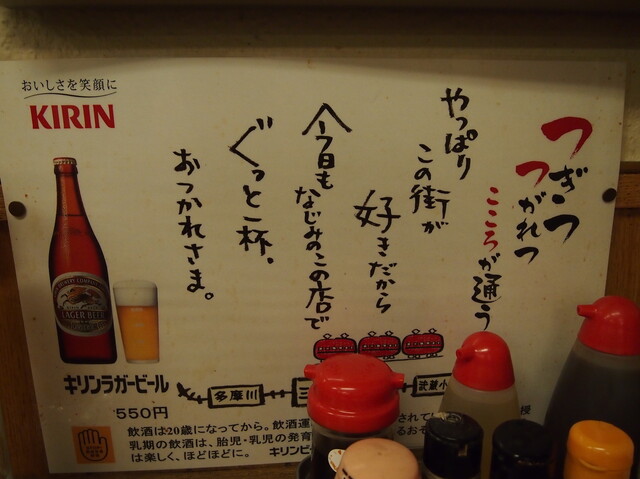 おいしさを笑顔に
KIRIN
つぎつ
つがれつ
こころが通う
やっぱり
この街が
好きだから
今日も
なじみのこの店で
ぐっと一杯、
おつかれさま。
LAGER BEER
キリンラガービール
550円
多摩川
武蔵小
飲酒は20歳になってから。飲酒運
乳期の飲酒は、胎児・乳児の発育
は楽しく、ほどほどに。 キリンビ